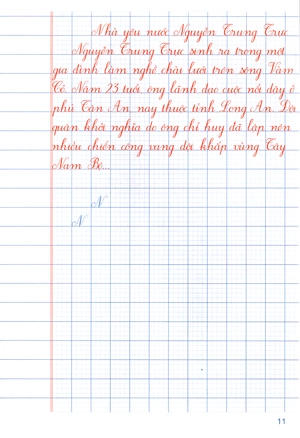 Nhà yêu nước Nguyễn Trung Trực
Nguyễn Trung Trực sinh ra trong một
gia đình làm nghề chài lưới trên sông Vàm
Cỏ. Năm 23 tuổi, ông lãnh đạo cuộc nổi dậy ở
phủ Tân An, nay thuộc tỉnh Long An. Đội
quân khởi nghĩa do ông chỉ huy đã lập nên
nhiều chiến công vang dội khắp vùng Tây
Nam Bộ...
N
N
11